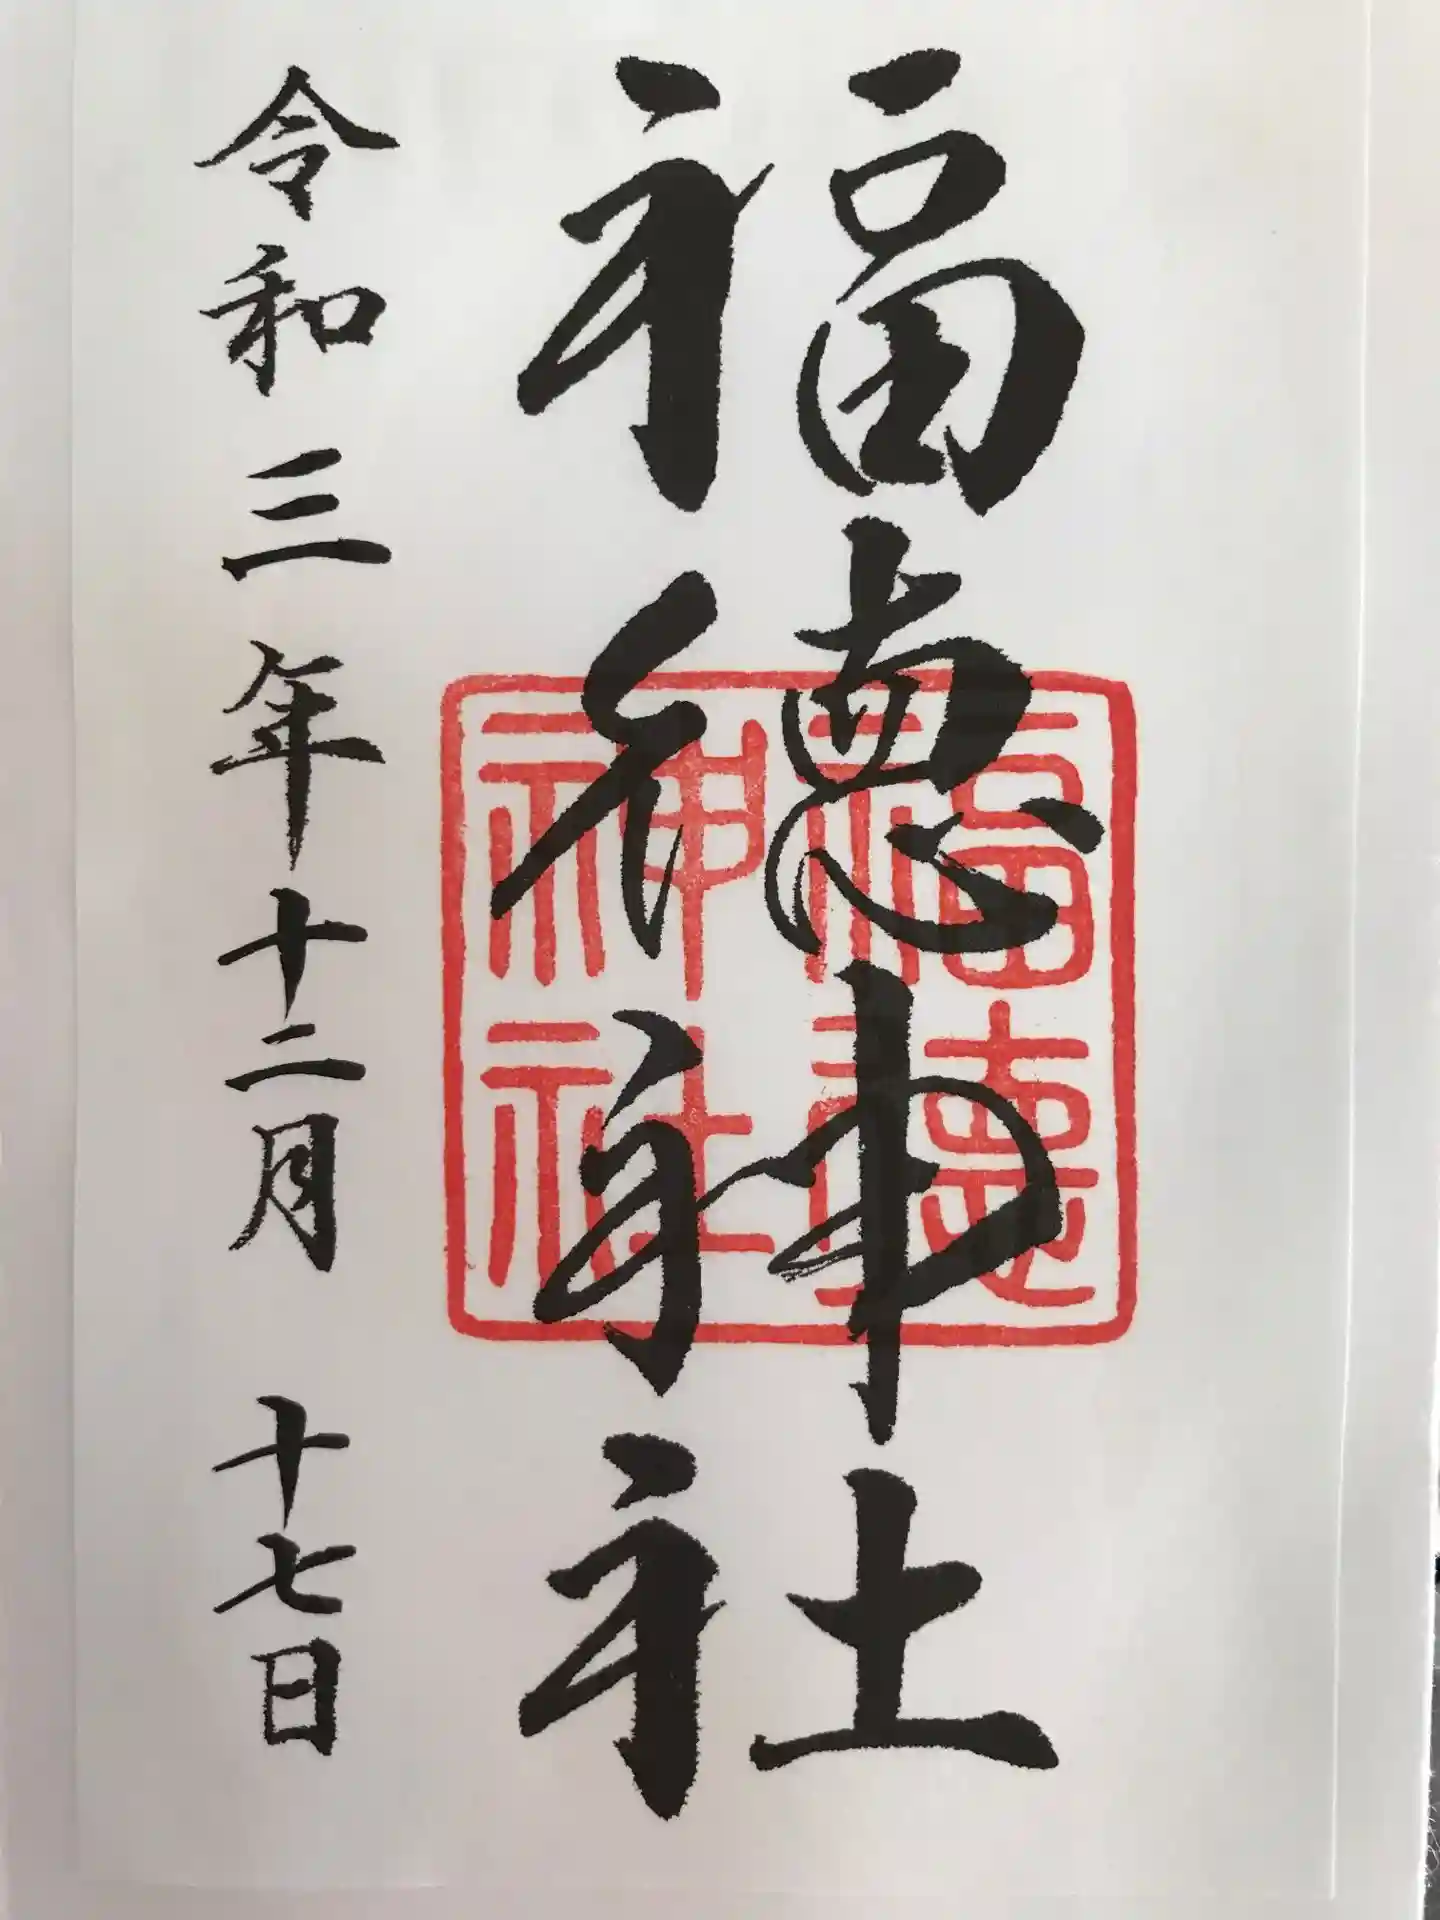 福徳神社
福徳神社
令和三年十二月 十七日